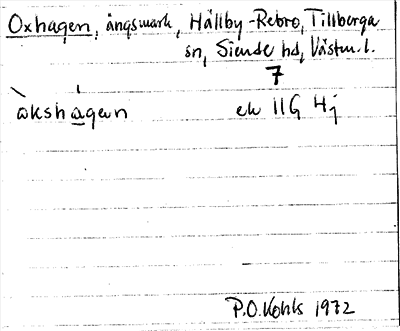 Oxhagen, ängsmark, Hällby-Rebro, Tillberga
sn, Siende hd, Västm. l.
7
òkshágen ek 11G 4j
P.O. Kohls 1972